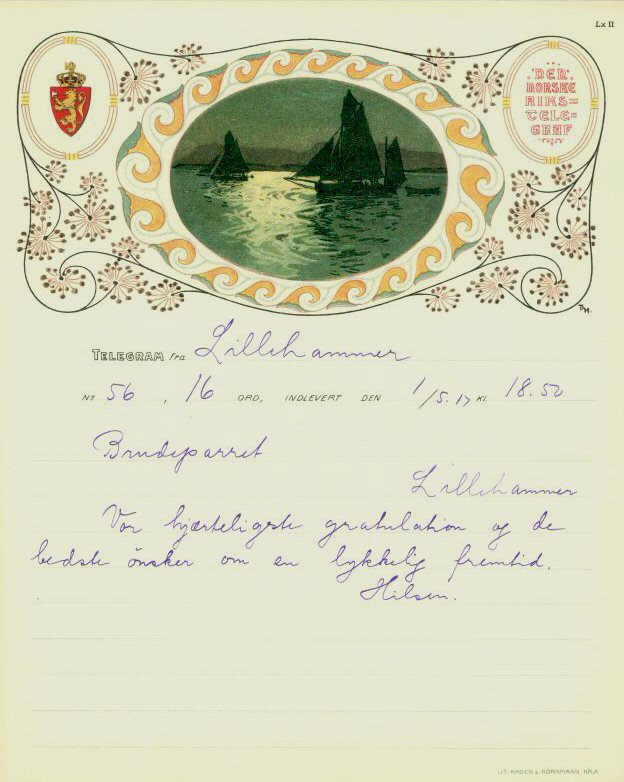 Lx II
DEN
NORSKE
RIKS=
TELE=
GRAF
TH.
TELEGRAM fra Lillehammer
No 56, 16 ORD, INDLEVERT DEN 1/5.17 Kl. 18.50
Brudeparret
Lillehammer
Vor hjærteligste gratulation og de
bedste önsker om en lykkelig fremtid.
Hilsen.
LIT. HAGEN & KORNMANN KR.A